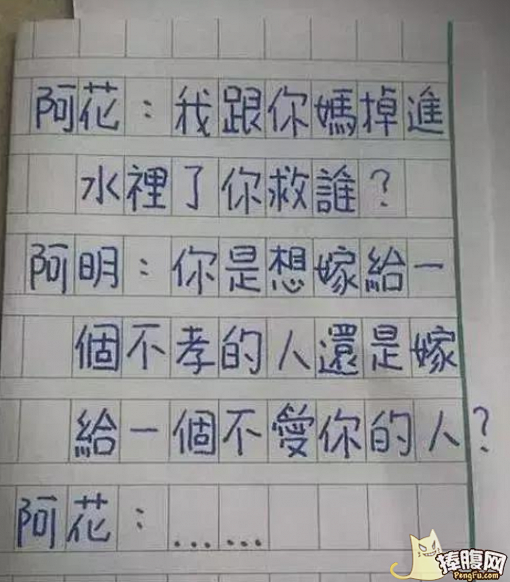 阿花：我跟你媽掉進
水裡了你救誰？
阿明：你是想嫁給一
個不孝的人還是嫁
給一個不愛你的人？
阿花：……
捧腹网
PengFu.com